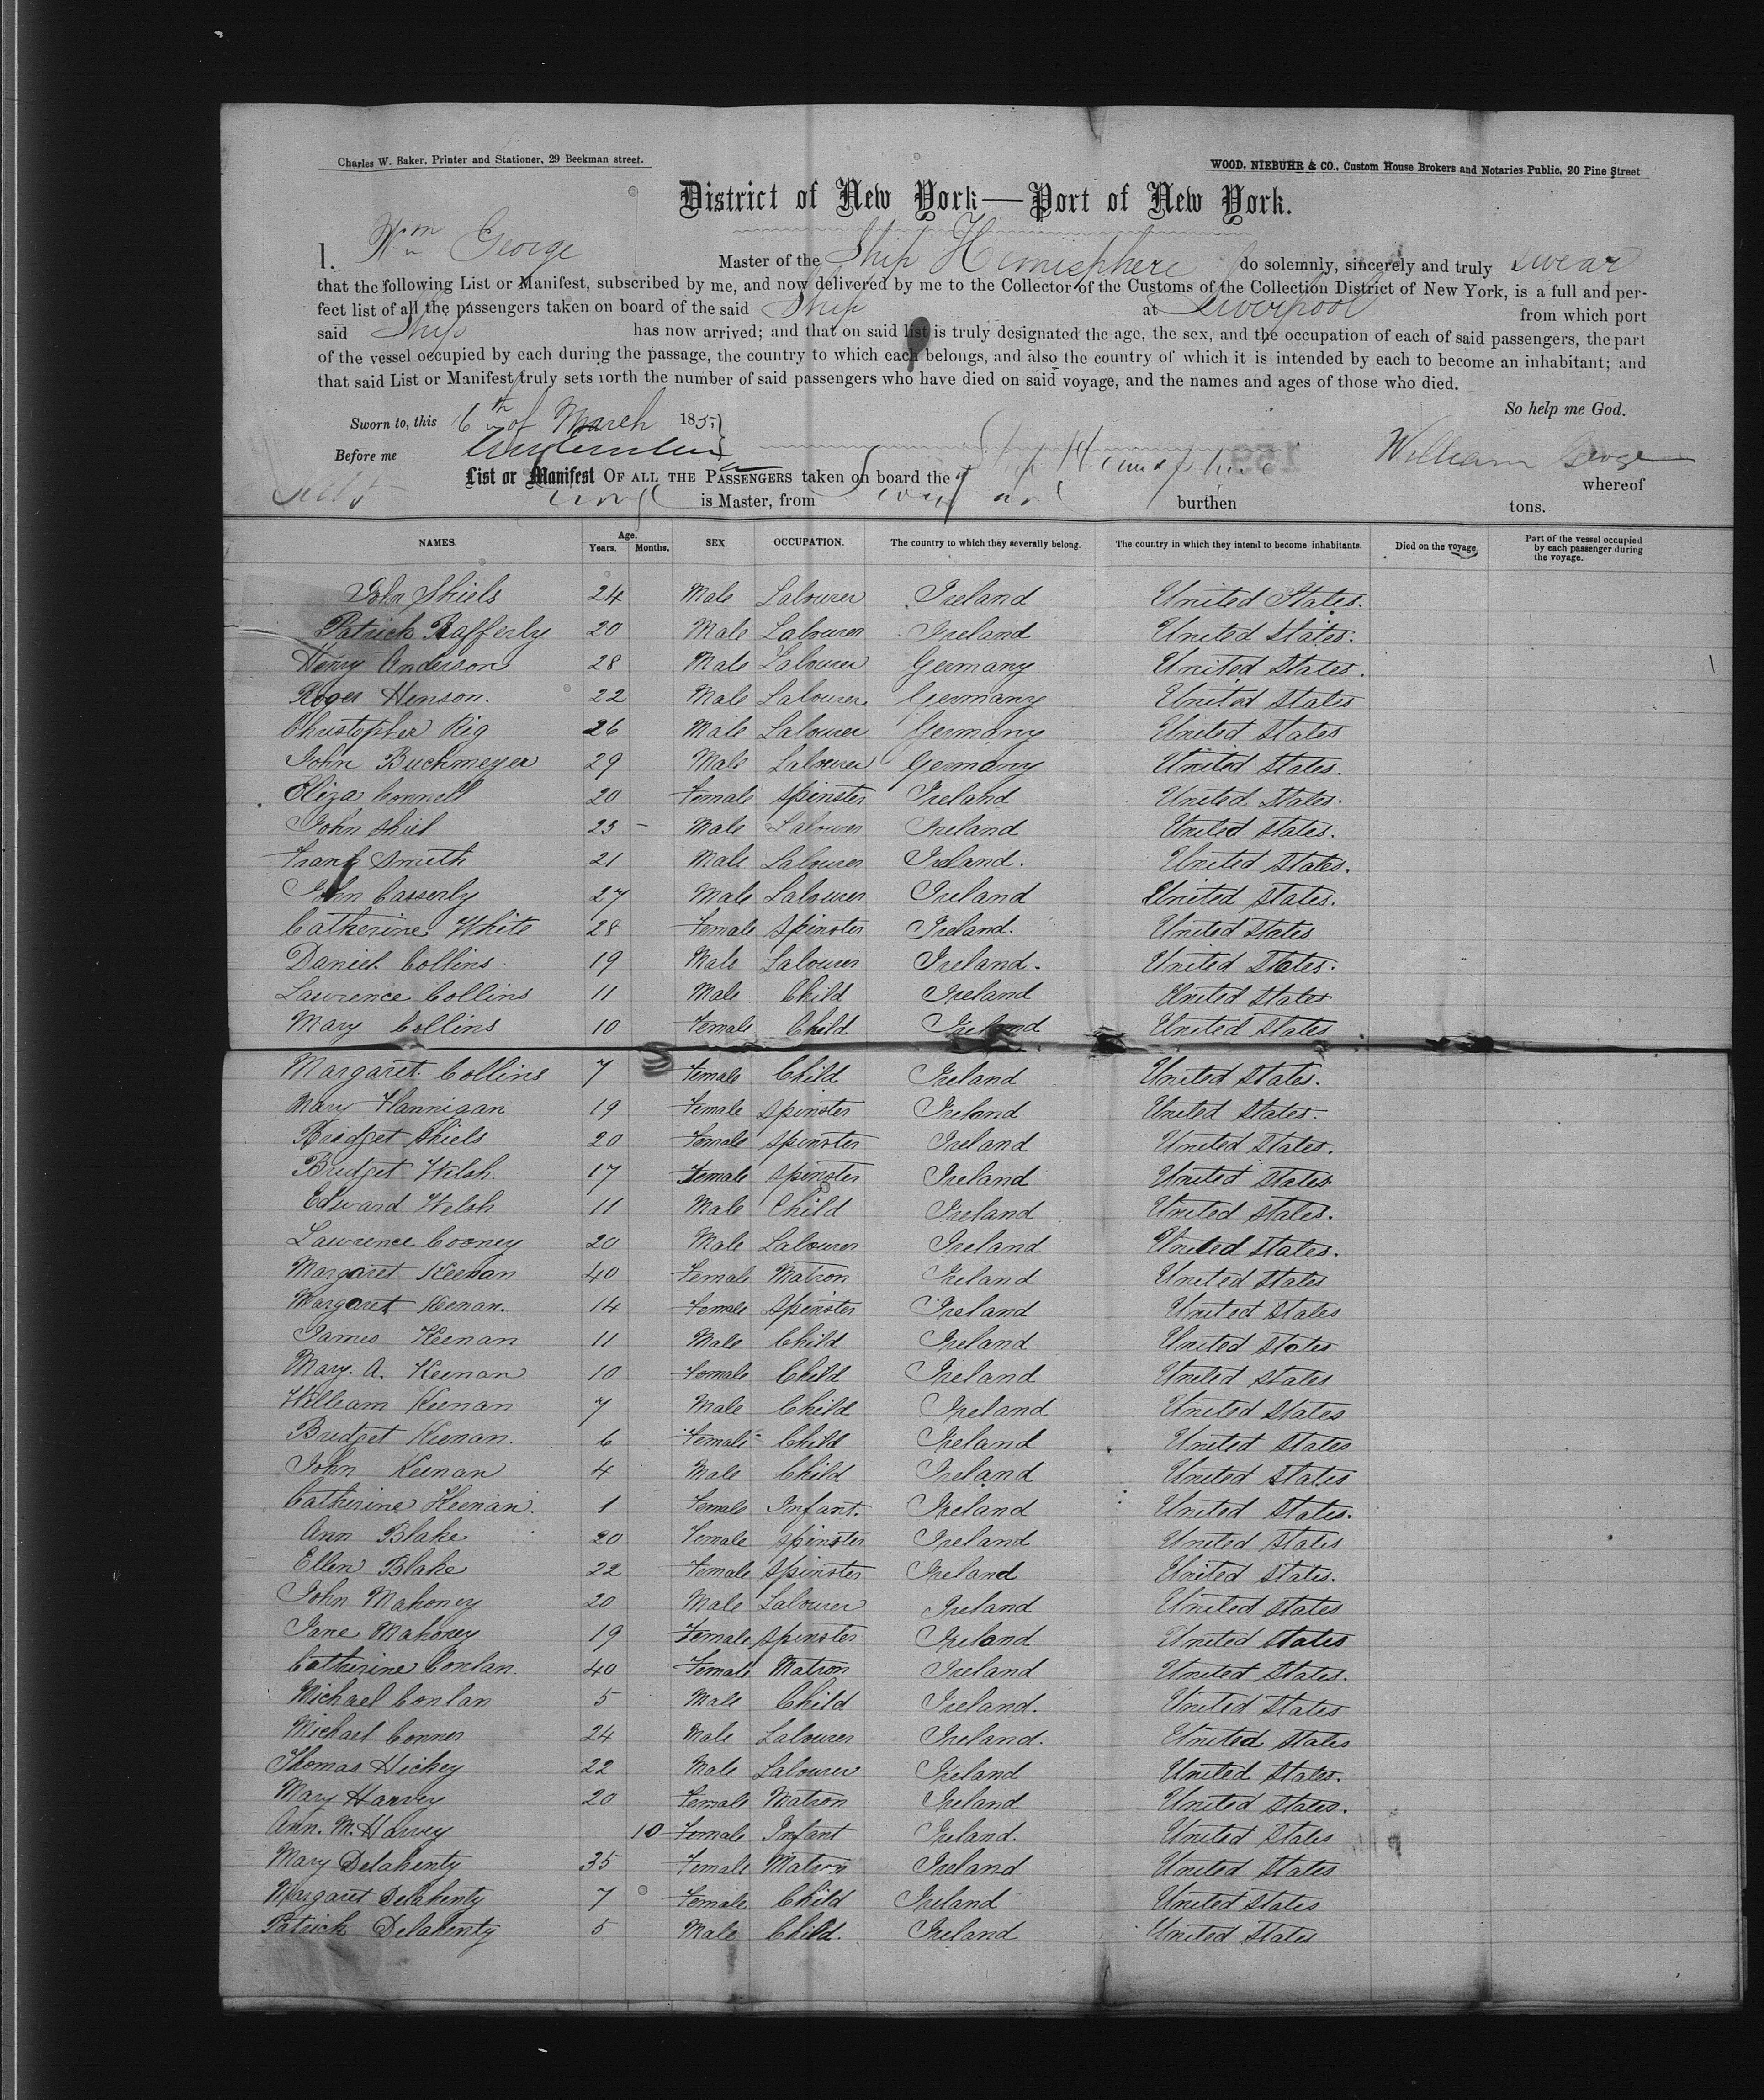 Charles W. Baker, Printer and Stationer, 29 Beekman street.
WOOD, NIEBUHR & CO., Custom House Brokers and Notaries Public, 20 Pine Street
District of New York—Port of New York.
I. Wm George Master of the Ship Hemisphere do solemnly, sincerely and truly swear
that the following List or Manifest, subscribed by me, and now delivered by me to the Collector of the Customs of the Collection District of New York, is a full and per-
fect list of all the passengers taken on board of the said Ship at Liverpool from which port
said Ship has now arrived; and that on said list is truly designated the age, the sex, and the occupation of each of said passengers, the part
of the vessel occupied by each during the passage, the country to which each belongs, and also the country of which it is intended by each to become an inhabitant; and
that said List or Manifest truly sets forth the number of said passengers who have died on said voyage, and the names and ages of those who died.
So help me God.
Sworn to, this 6th of March 185
Before me
William George
List or Manifest OF ALL THE PASSENGERS taken on board the Ship Hemisphere whereof
is Master, from burthen tons.
NAMES. Age. Years. Months. SEX. OCCUPATION. The country to which they severally belong. The country in which they intend to become inhabitants. Died on the voyage. Part of the vessel occupied by each passenger during the voyage.
John Shiels 24 Male Labourer Ireland United States.
Patrick Rafferly 20 Male Labourer Ireland United States.
Henry Anderson 28 Male Labourer Germany United States.
Roger Henson. 22 Male Labourer Germany United States
Christopher Rig 26 Male Labourer Germany United States
John Buckmeyer 29 Male Labourer Germany United States.
Eliza Connell 20 Female Spinster Ireland United States.
John Shiel 23 - Male Labourer Ireland United States.
Frank Smith 21 Male Labourer Ireland. United States.
John Casserly 27 Male Labourer Ireland United States.
Catherine White 28 Female Spinster Ireland. United States
Daniel Collins 19 Male Labourer Ireland. United States.
Lawrence Collins 11 Male Child Ireland United States
Mary Collins 10 Female Child Ireland United States
Margaret Collins 7 Female Child Ireland United States.
Mary Flannigan 19 Female Spinster Ireland United States.
Bridget Shiels 20 Female Spinster Ireland United States.
Bridget Welsh. 17 Female Spinster Ireland United States
Edward Welsh 11 Male Child Ireland United States.
Lawrence Cooney 20 Male Labourer Ireland United States.
Margaret Keenan 40 Female Matron Ireland United States
Margaret Keenan. 14 Female Spinster Ireland United States
James Keenan 11 Male Child Ireland United States
Mary. A. Keenan 10 Female Child Ireland United States
William Keenan 7 Male Child Ireland United States
Bridget Keenan. 6 Female Child Ireland United States
John Keenan 4 Male Child Ireland United States
Catherine Keenan. 1 Female Infant. Ireland United States.
Ann Blake 20 Female Spinster Ireland United States
Ellen Blake 22 Female Spinster Ireland United States.
John Mahoney 20 Male Labourer Ireland United States
Jane Mahoney 19 Female Spinster Ireland United States
Catherine Conlan. 40 Female Matron Ireland United States.
Michael Conlan 5 Male Child Ireland. United States
Michael Conner 24 Male Labourer Ireland. United States
Thomas Hickey 22 Male Labourer Ireland United States.
Mary Harvey 20 Female Matron Ireland United States.
Ann. M. Harvey 10 Female Infant Ireland. United States
Mary Delahenty 35 Female Matron Ireland United States
Margaret Delahenty 7 Female Child Ireland United States
Patrick Delahenty 5 Male Child. Ireland United States